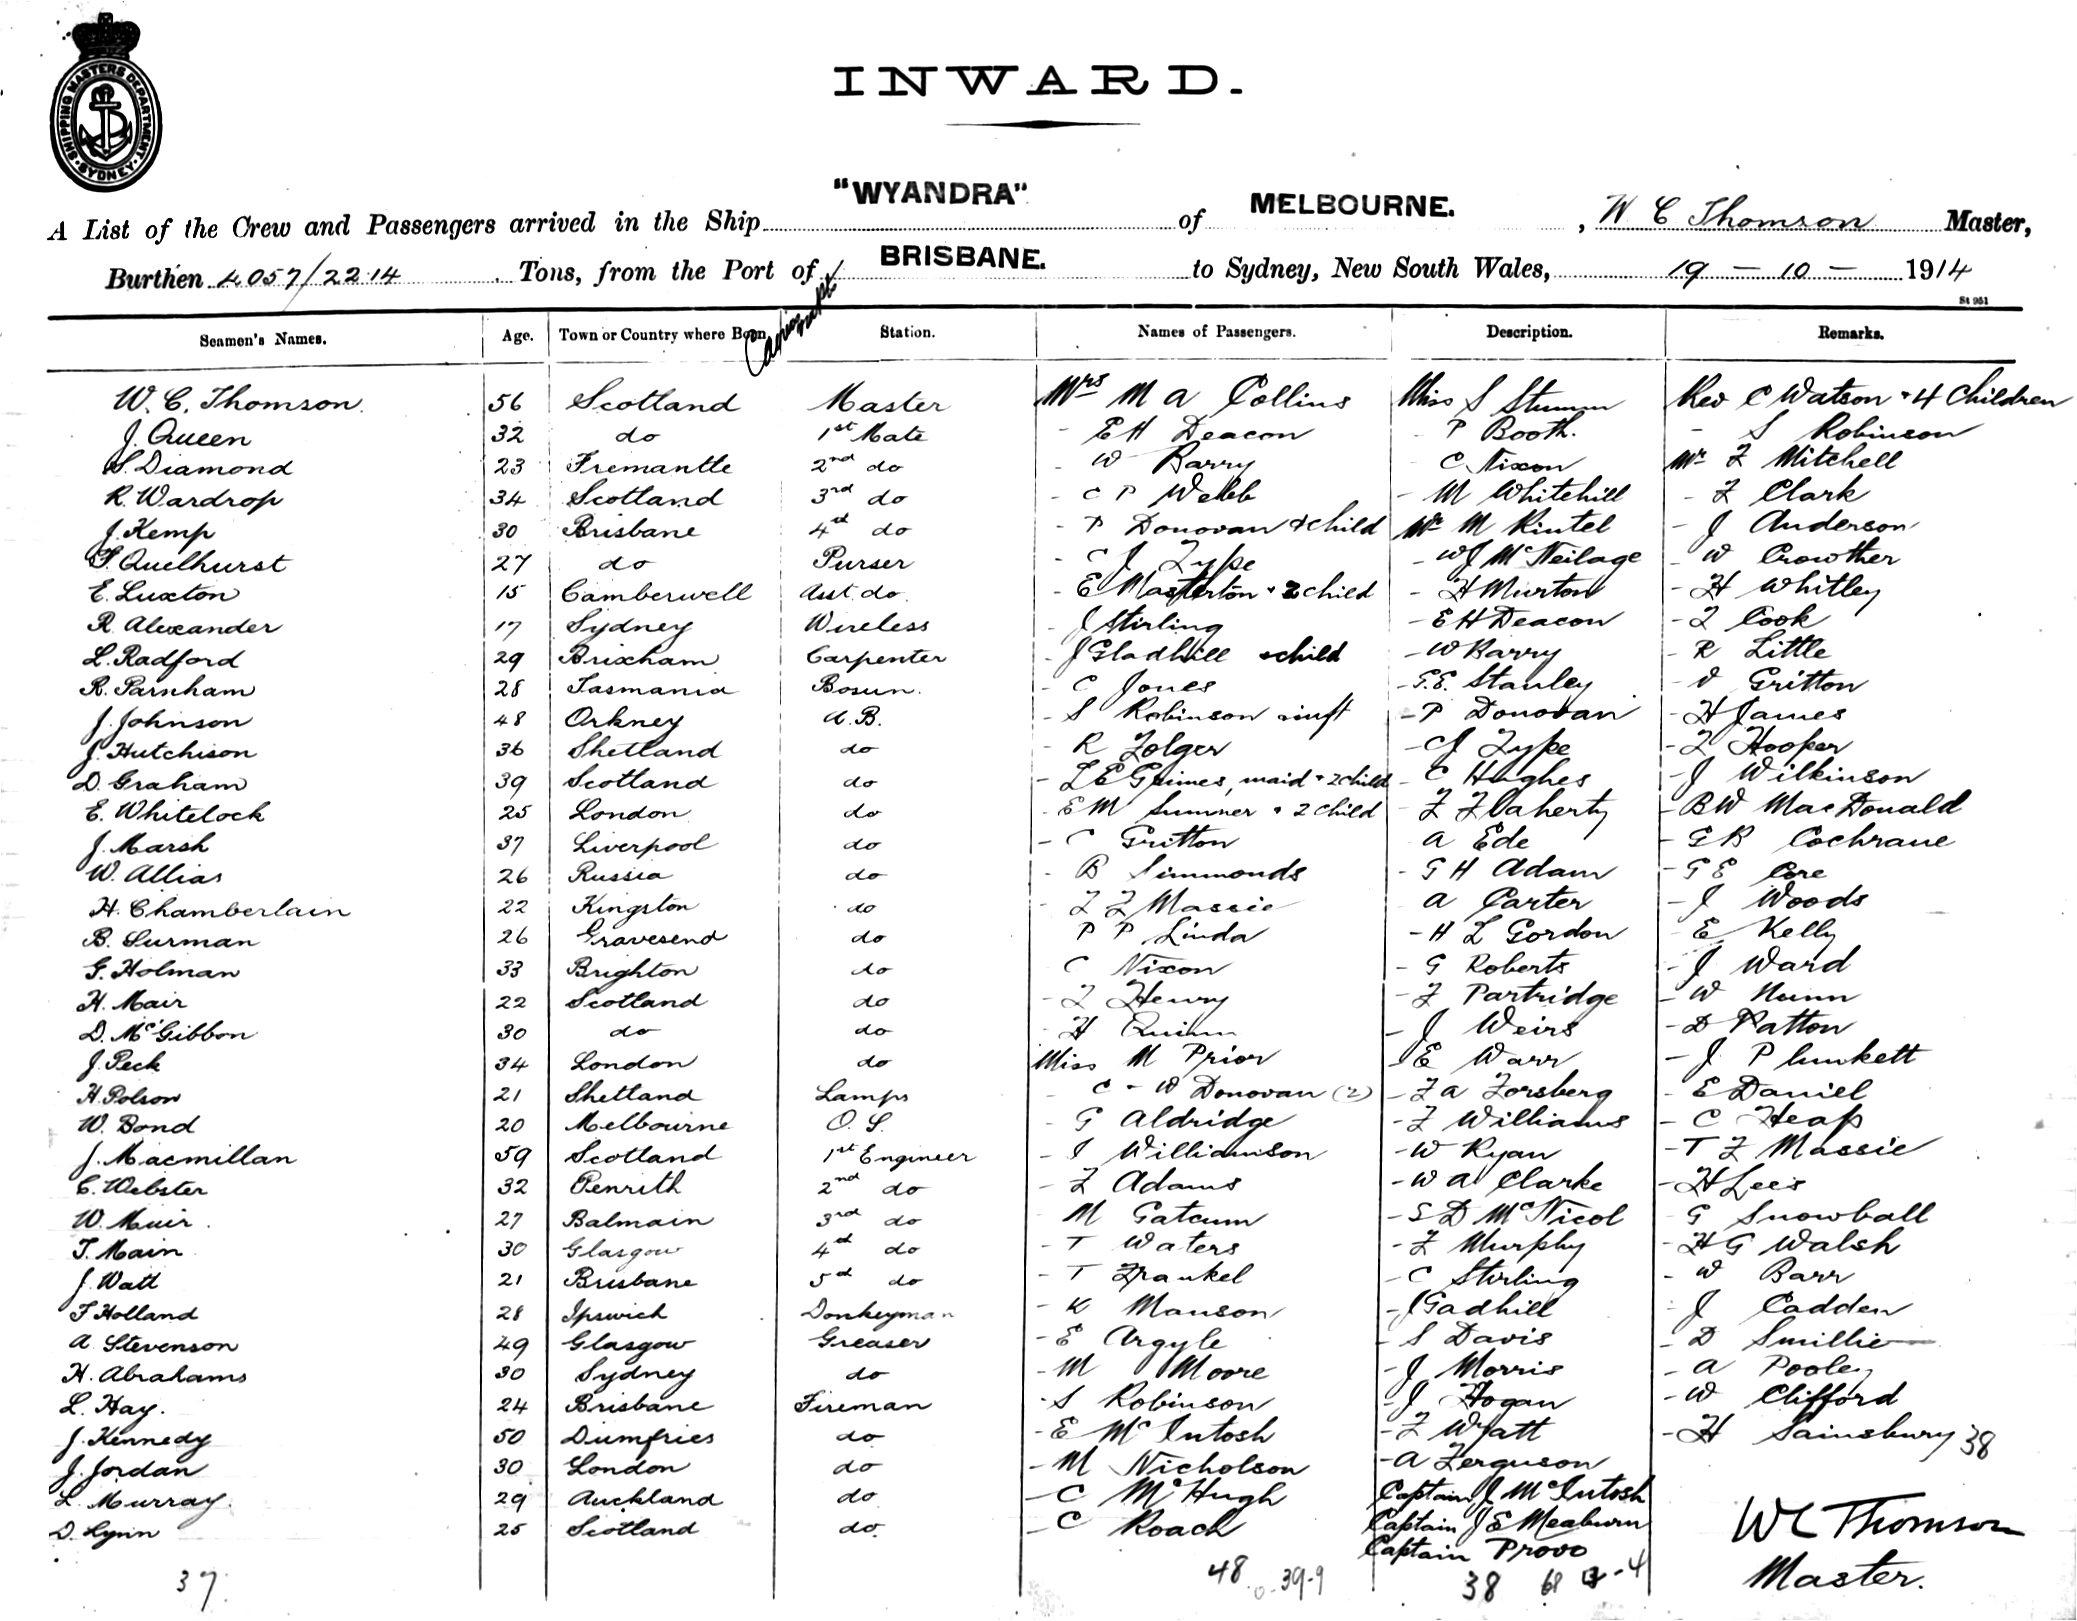 SHIPPING MASTERS DEPARTMENT. SYDNEY.
INWARD.
A List of the Crew and Passengers arrived in the Ship "WYANDRA" of MELBOURNE. , W C Thomson Master,
Burthen 4057/2214 Tons, from the Port of BRISBANE. to Sydney, New South Wales, 19 - 10 - 1914
St 951
Seamen's Names. Age. Town or Country where Born Station. Names of Passengers. Description. Remarks.
W. C. Thomson 56 Scotland Master Mrs M A Collins Miss S Stumm Rev C Watson + 4 Children
J. Queen 32 do 1st Mate - E H Deacon - P Booth. - S Robinson
S. Diamond 23 Fremantle 2nd do - W Barry C Nixon Mr F Mitchell
R. Wardrop 34 Scotland 3rd do - C P Webb - M Whitehill - F Clark
J. Kemp 30 Brisbane 4th do - P Donovan + child Mr M Rintel - J Anderson
F. Quelhurst 27 do Purser - C J Zype - W J McNeilage - W Crowther
E. Luxton 15 Camberwell Asst do. - E Masterton + 2 child - H Murton - H Whitley
R. Alexander 17 Sydney Wireless - J Stirling - E H Deacon - T Cook
L. Radford 29 Brixham Carpenter - J Gladhill + child - W Barry - R Little
R. Parnham 28 Tasmania Bosun. - C Jones - G. E. Stanley - D Gritton
J. Johnson 48 Orkney A. B. - S Robinson + inft - P Donovan - H James
J. Hutchison 36 Shetland do - R Folger - C J Zype - T Hooper
D. Graham 39 Scotland do - L E Grimes, maid + 2 child - C Hughes - J Wilkinson
E. Whitelock 25 London do - E M Sumner + 2 child - F Flaherty - B W MacDonald
J. Marsh 37 Liverpool do - C Gritton A Ede - G R Cochrane
W. Allias 26 Russia do - B Simmonds - G H Adam - G E Core
H. Chamberlain 22 Kingston do - T F Massie A Carter - J Woods
B. Surman 26 Gravesend do P P Linda - H L Gordon - E Kelly
G. Holman 33 Brighton do C Nixon - G Roberts - J Ward
H. Mair 22 Scotland do - T Henry - F Partridge - W Nunn
D. McGibbon 30 do do - H Quinn - J Weirs - D Patton
J. Peck 34 London do Miss M Prior - E Warr - J Plunkett
H. Polson 21 Shetland Lamps - C + W Donovan (2) - F A Forsberg - E Daniel
W. Bond 20 Melbourne O. S. - G Aldridge - F Williams - C Heap
J. Macmillan 59 Scotland 1st Engineer - I Williamson - W Ryan - T F Massie
C. Webster 32 Penrith 2nd do - F Adams - W A Clarke - H Lees
W. Muir 27 Balmain 3rd do M Gatcum - S D McNicol G Snowball
T. Main 30 Glasgow 4th do - T Waters - F Murphy - H G Walsh
J. Watt 21 Brisbane 5th do - T Frankel - C Stirling - W Barr
F Holland 28 Ipswich Donkeyman - K Manson - J Gadhill - J Cadden
A Stevenson 49 Glasgow Greaser - E Argyle - S Davis - D Smillie
H. Abrahams 30 Sydney do - M Moore - J Morris - A Pooley
L. Hay. 24 Brisbane Fireman - S Robinson - J Hogan - W Clifford
J. Kennedy 50 Dumfries do - E McIntosh - F Wyatt - H Sainsbury 38
J. Jordan 30 London do - M Nicholson - A Ferguson
L. Murray. 29 Auckland do - C McHugh Captain J McIntosh
D. Lynn 25 Scotland do - C Roach Captain J E Meaburn
Captain Provo
W C Thomson
Master.
37 48 39-9 38 68 -4